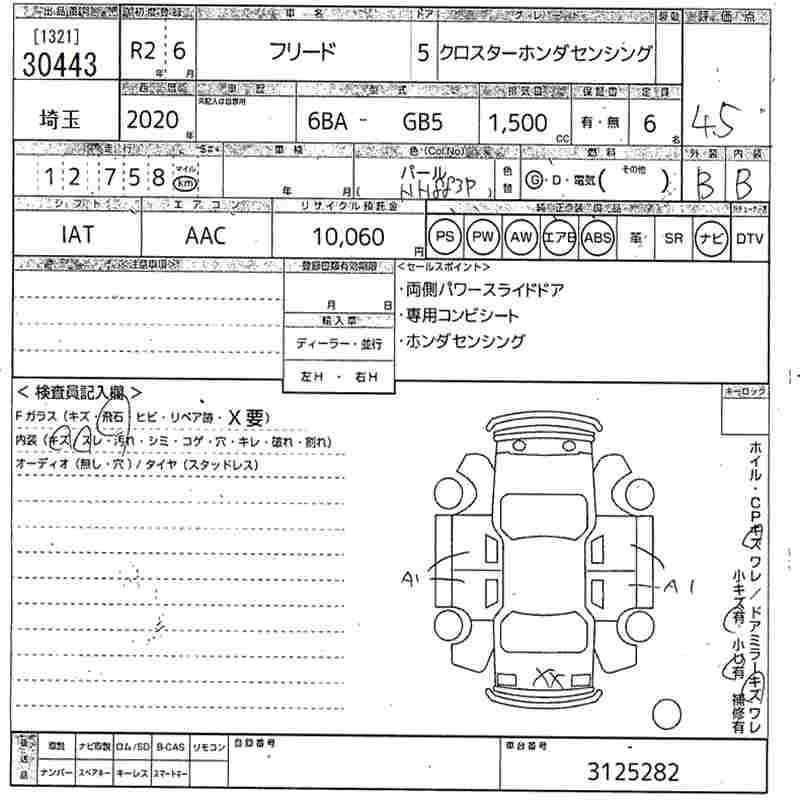 出品番号 初度登録 車名 ドア グレード 装動 評価点
[1321]
30443
R2 年 6 月
フリード
5
クロスターホンダセンシング
西暦 車歴 型式 排気量 保証書 定員
埼玉
2020 年
6BA - GB5
1,500 cc
有・無
6 名
4.5
走行 車検 色(Col No) 燃料 外装 内装
12758 マイル km
年 月
パール
(NH883P)
色替
G・D・電気( その他 )
B B
シフト エアコン リサイクル預託金
IAT AAC 10,060 円
PS PW AW エアB ABS 革 SR ナビ DTV
注意事項 登録書類有効期限
月 日
輸入車
ディーラー・並行
左H・右H
<セールスポイント>
・両側パワースライドドア
・専用コンビシート
・ホンダセンシング
キーロック
<検査員記入欄>
Fガラス(キズ・飛石 ヒビ・リペア跡・X要)
内装(キズ スレ・汚れ・シミ・コゲ・穴・キレ・破れ・割れ)
オーディオ(無し・穴)/タイヤ(スタッドレス)
A1
A1
XX
ホイル・CPキズ ワレ/ドアミラーキズ ワレ
小キズ有 小U有 補修有
後送品
取説 ナビ取説 ロム/SD B-CAS リモコン
ナンバー スペアキー キーレス スマートキー
登録番号
車台番号
3125282